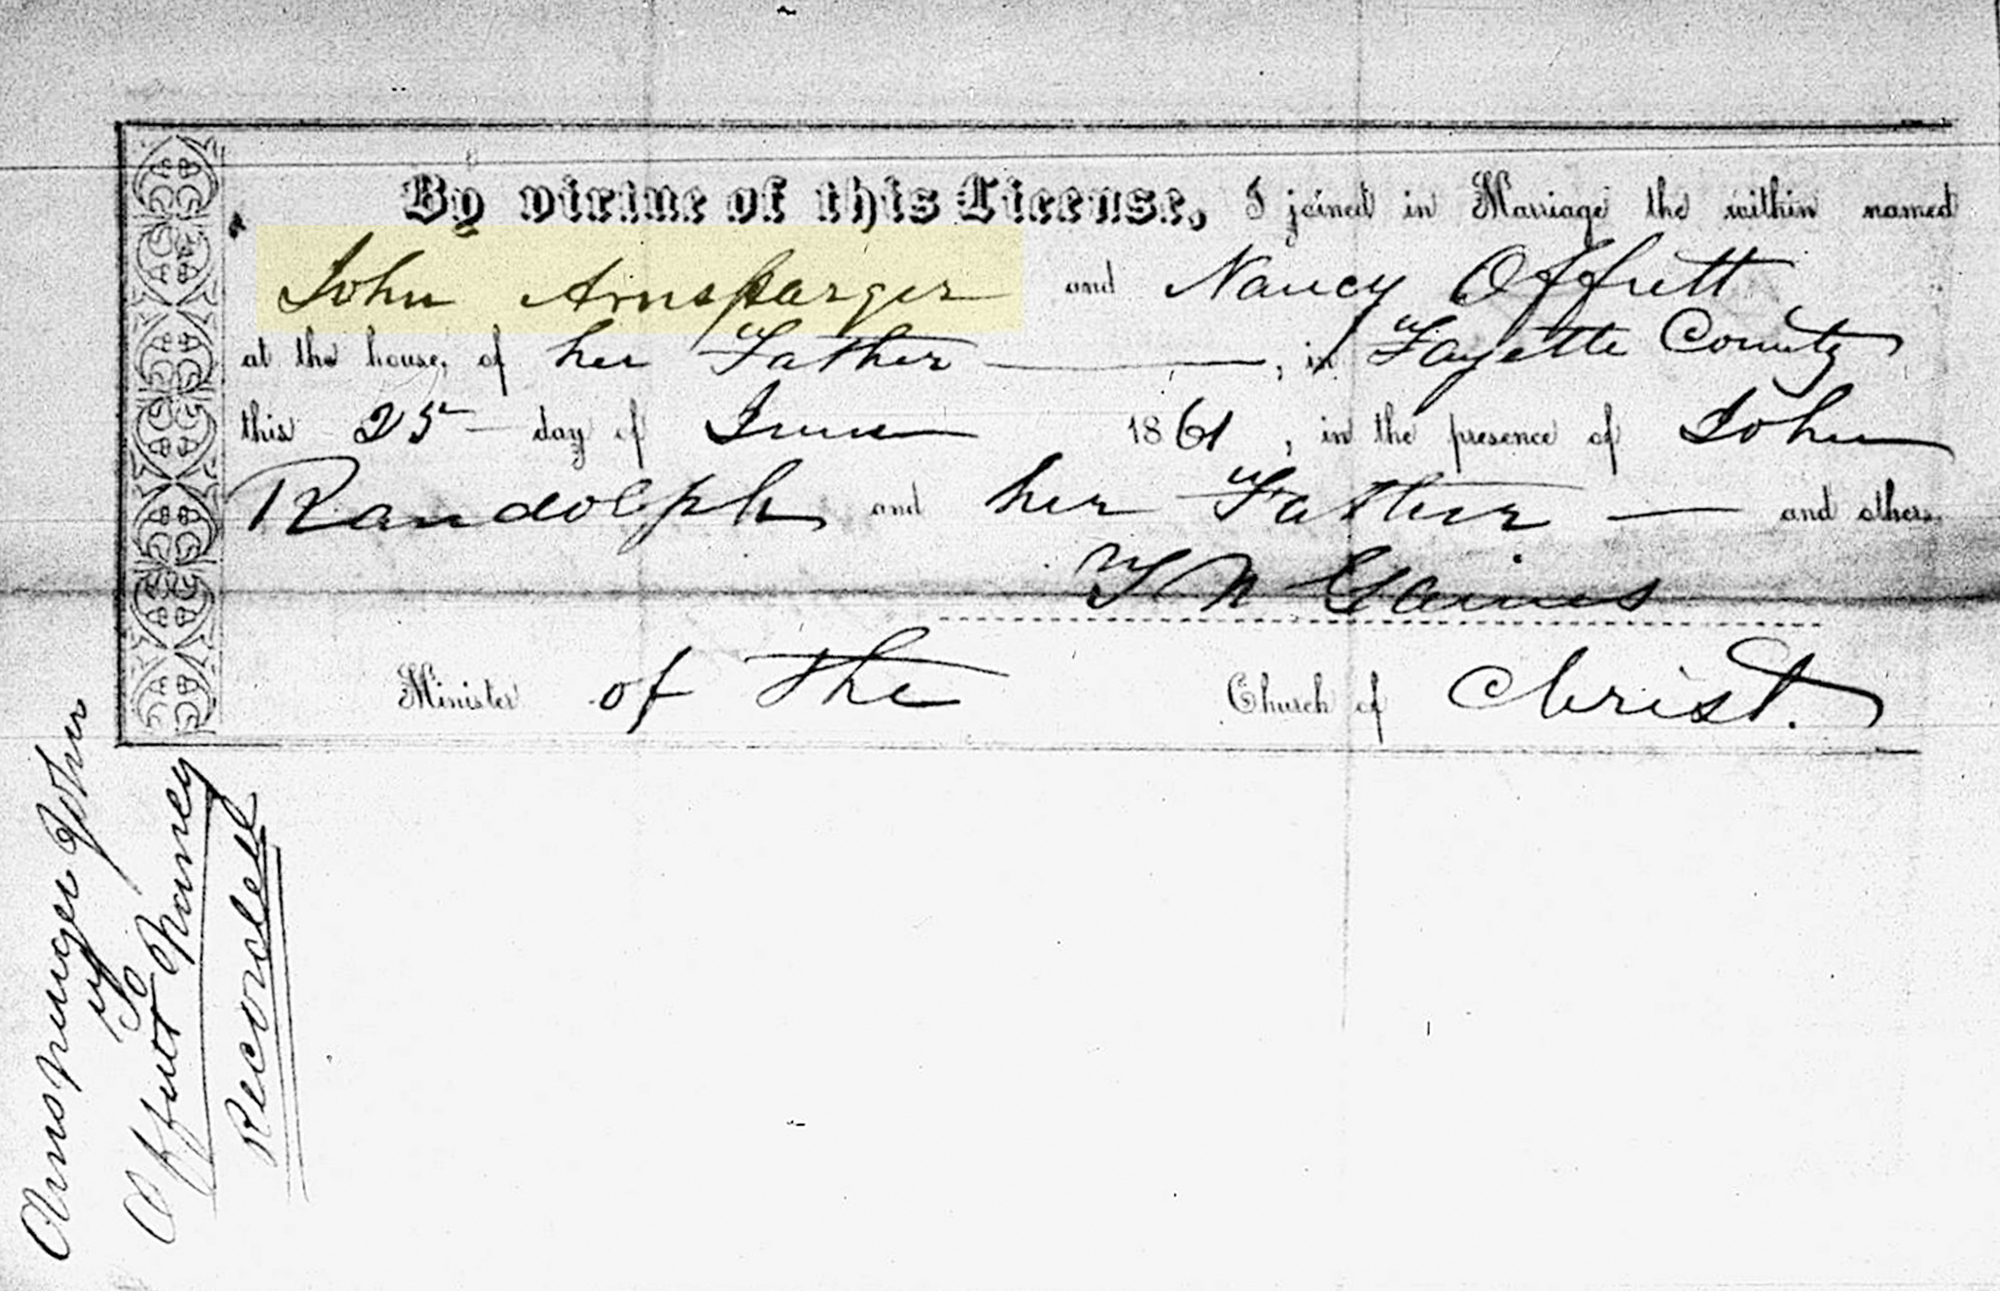 By virtue of this License, I joined in Marriage the within named
John Arnsparger and Nancy Offutt
at the house of her Father —, in Fayette County
this 25 — day of June 1861, in the presence of John
Randolph and her Father — and others.
T N Gaines
Minister of the Church of Christ.
John
To
Offutt Nancy
Recorded